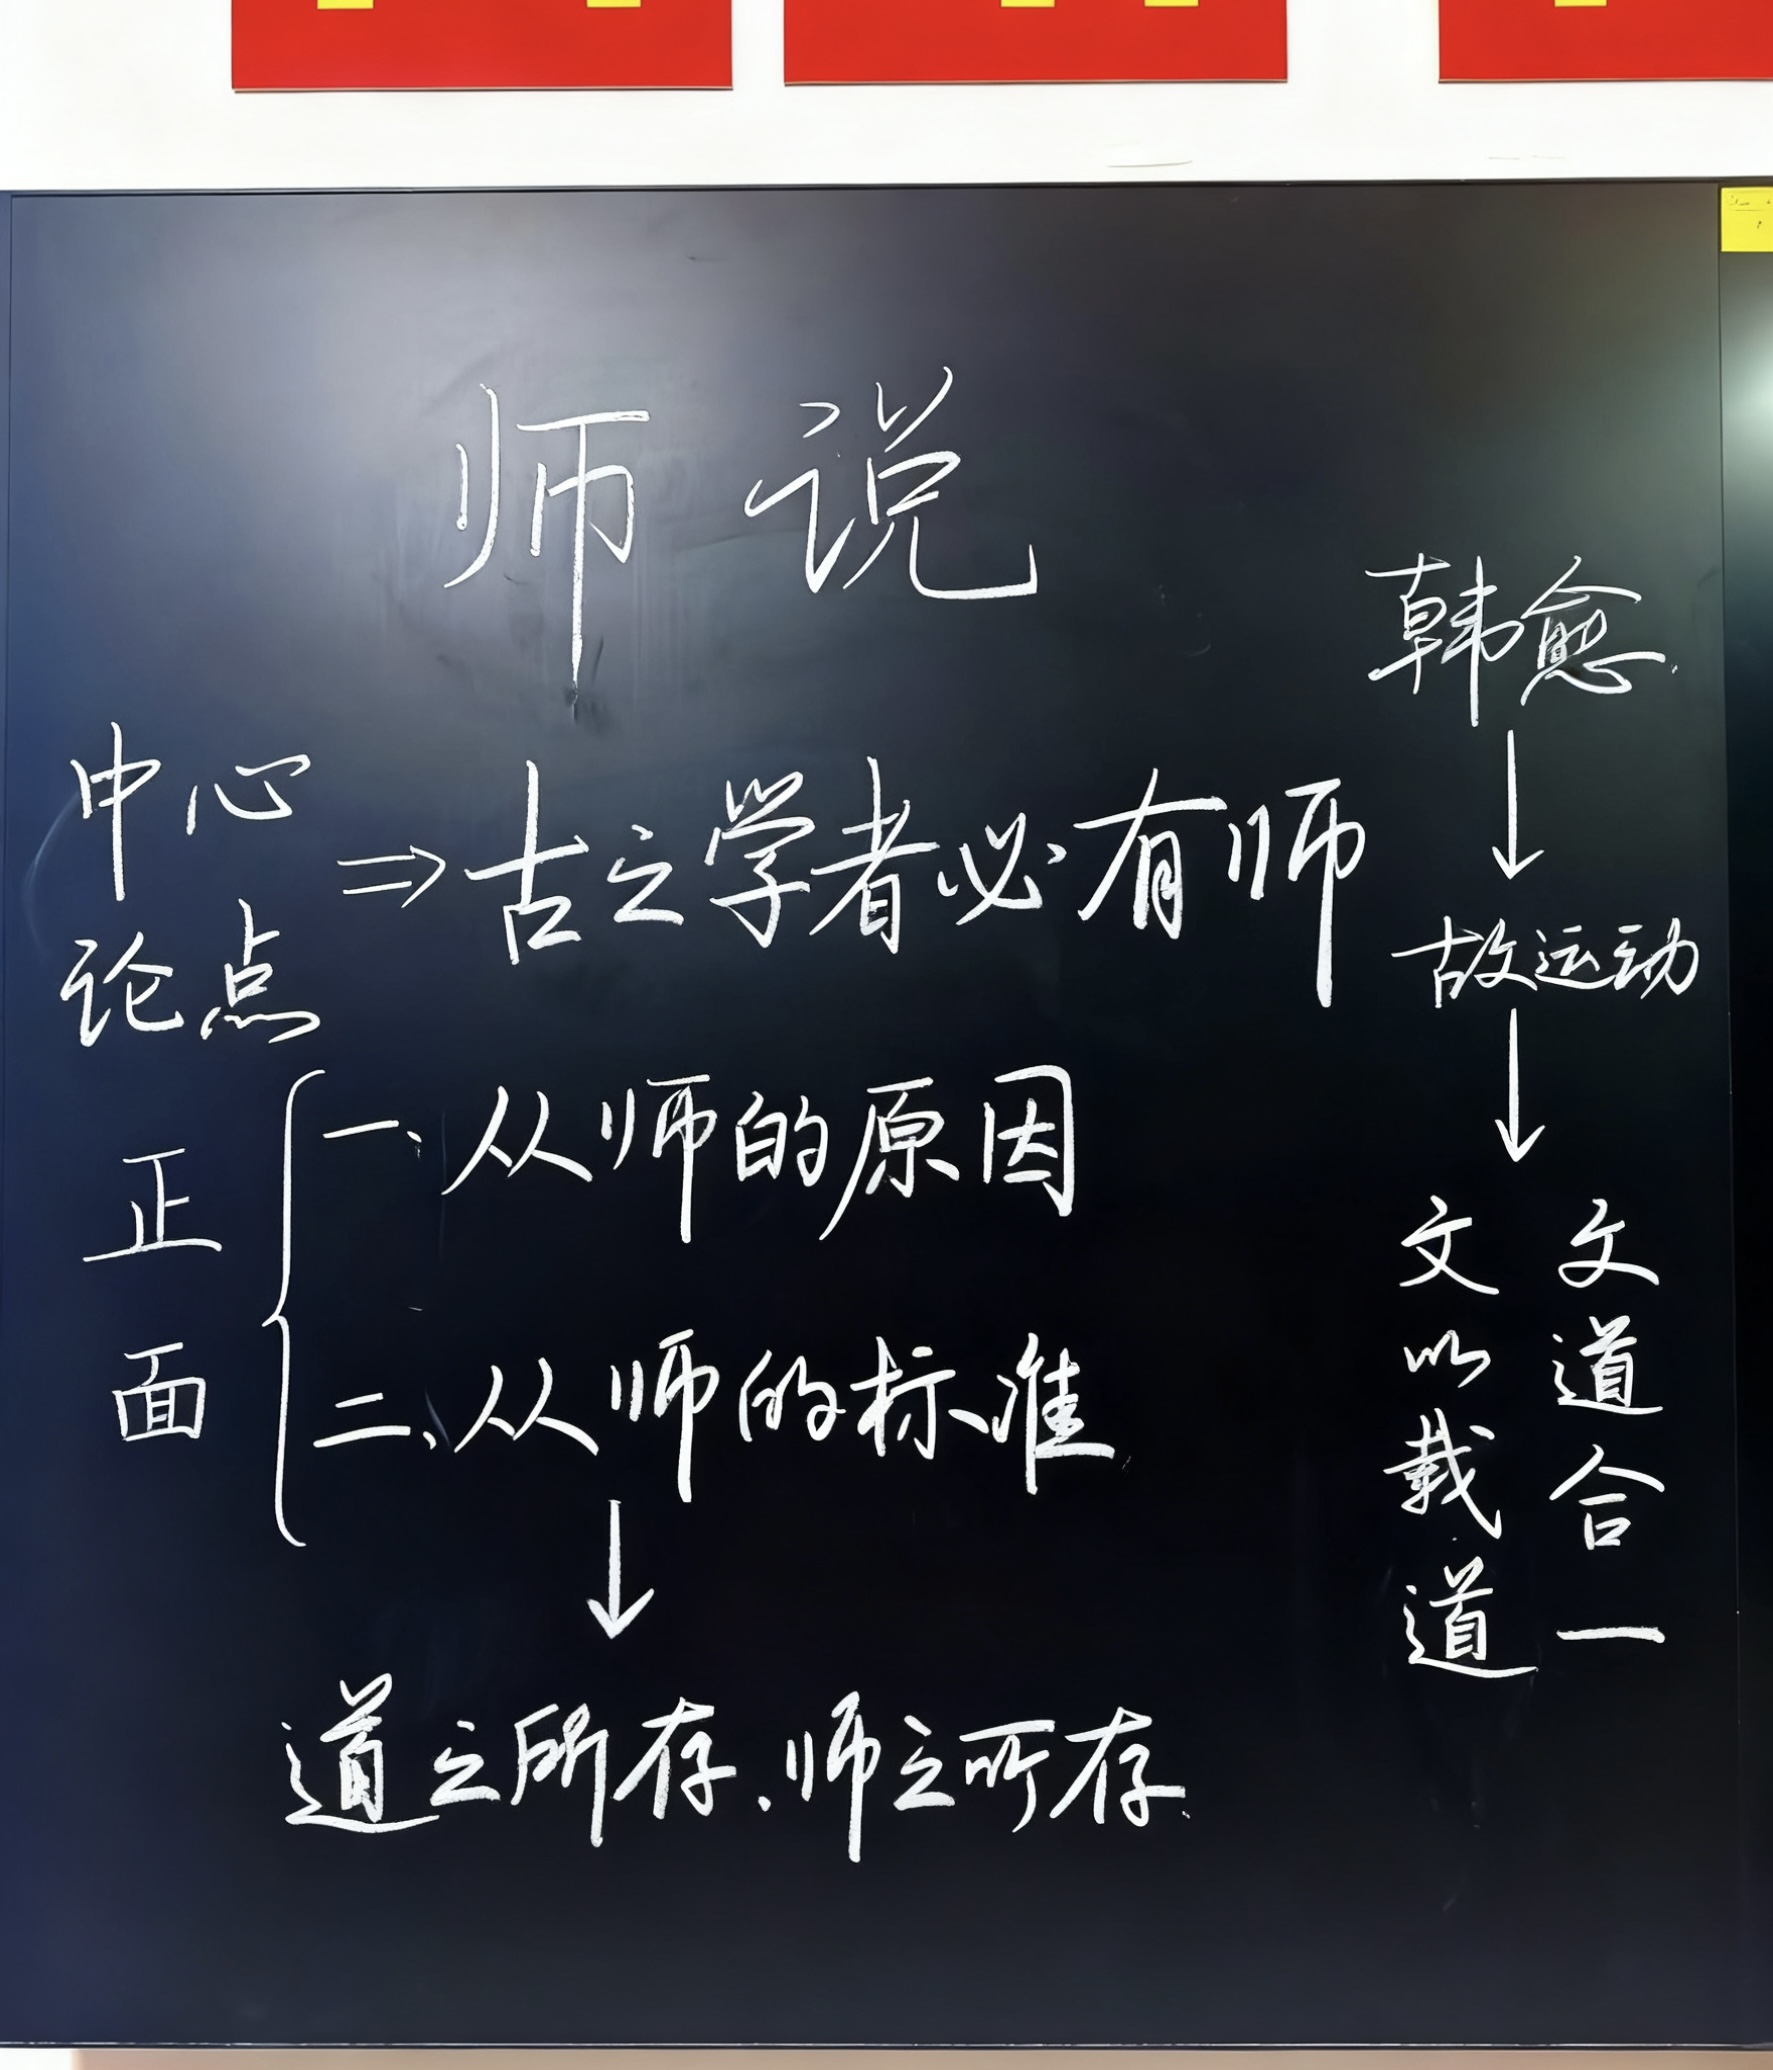 师说
韩愈
中心
论点
⇒古之学者必有师
↓
故运动
↓
正面
一、从师的原因
二、从师的标准
↓
道之所存、师之所存
文道合一
文以载道